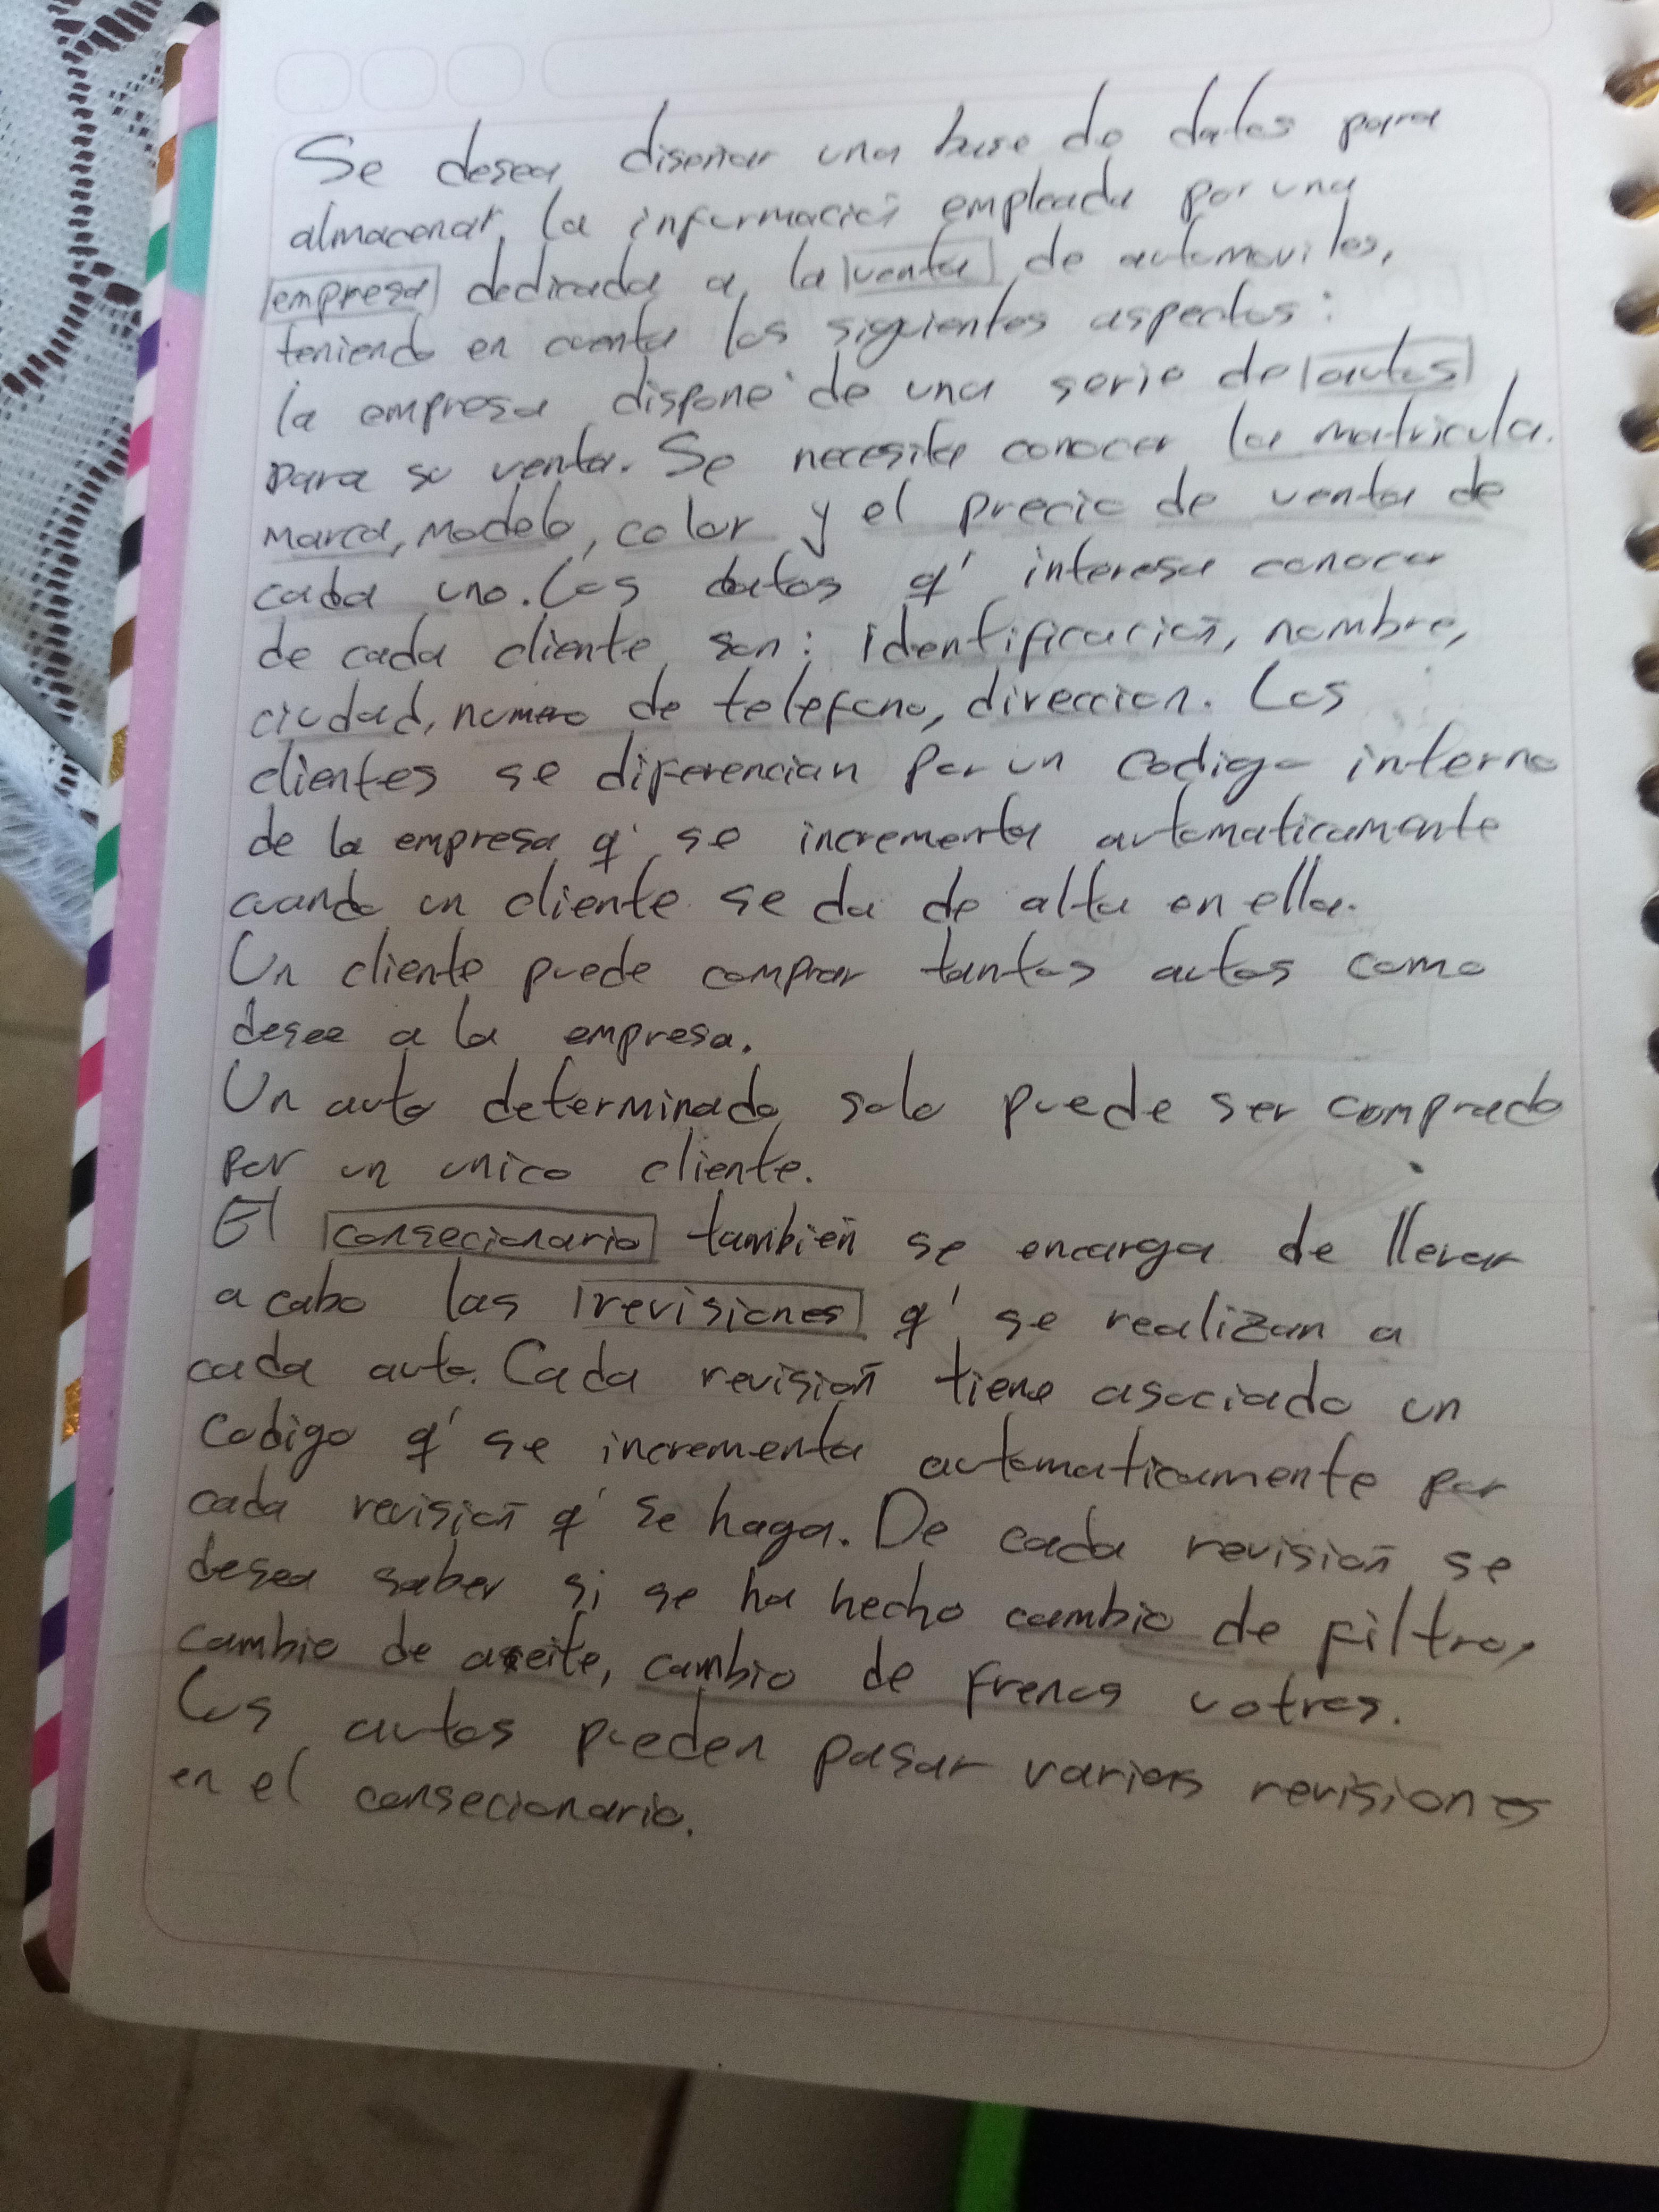 Se desea diseñar una base de datos para
almacenar la información empleada por una
empresa dedicada a la venta de automoviles,
teniendo en cuenta los siguientes aspectos:
la empresa dispone de una serie de autos
para su venta. Se necesita conocer la matricula.
marca, modelo, color y el precio de venta de
cada uno. Los datos q' interesa conocer
de cada cliente son: identificación, nombre,
ciudad, numero de telefono, direccion. Los
clientes se diferencian por un codigo interno
de la empresa q' se incrementa automaticamente
cuando un cliente se da de alta en ella.
Un cliente puede comprar tantos autos como
desee a la empresa.
Un auto determinado solo puede ser comprado
por un unico cliente.
El consecionario también se encarga de llevar
a cabo las revisiones q' se realizan a
cada auto. Cada revisión tiene asociado un
Codigo q' se incrementa automaticamente por
cada revisión q' se haga. De cada revisión se
desea saber si se ha hecho cambio de filtro,
cambio de aseite, cambio de frenos u otros.
Los autos pueden pasar varias revisiones
en el consecionario.